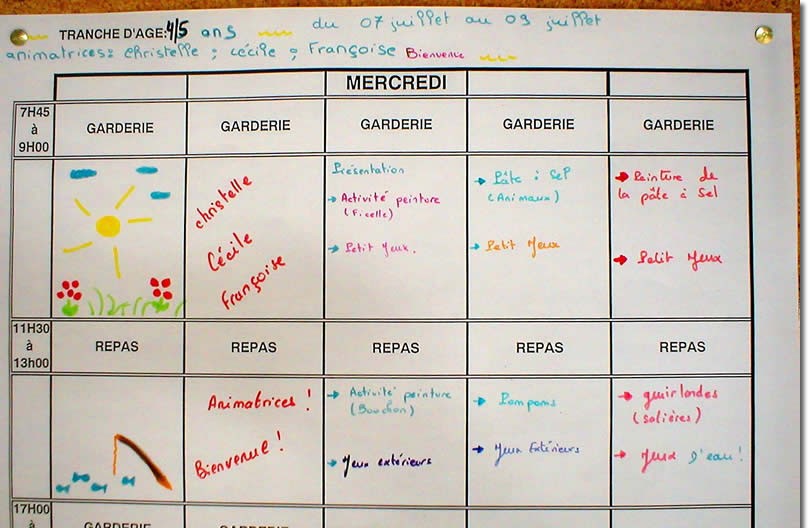 TRANCHE D'AGE: 4/5 ans du 07 juillet au 09 juillet
animatrices: christelle ; cécile ; Françoise Bienvenue
MERCREDI
7H45
à
9H00
GARDERIE GARDERIE GARDERIE GARDERIE GARDERIE
christelle
Cécile
Françoise
Présentation
→ Activité peinture
(Ficelle)
→ Petit Jeux.
→ Pâte à Sel
(Animaux)
→ Petit Jeux
→ Peinture de
la pâte à Sel
→ Petit Jeux
11H30
à
13h00
REPAS REPAS REPAS REPAS REPAS
Animatrices !
Bienvenue !
→ Activité peinture
(Bouchon)
→ Jeux extérieurs
→ Pompoms
→ Jeux Extérieurs
→ guirlandes
(salières)
→ Jeux d'eau !
17H00
à
GARDERIE